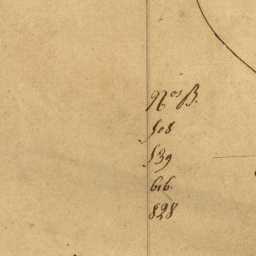 Nos B.
508
539
616.
828